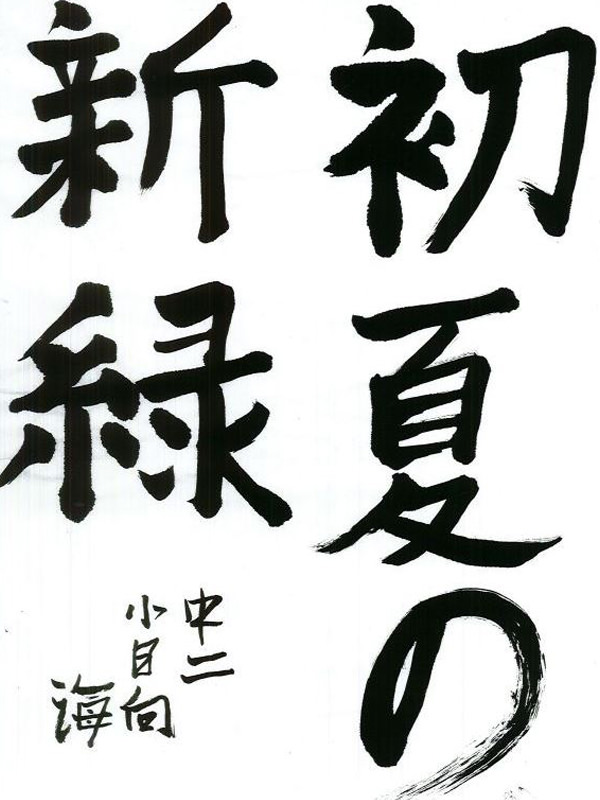 初夏の
新緑
中二
小日向
海